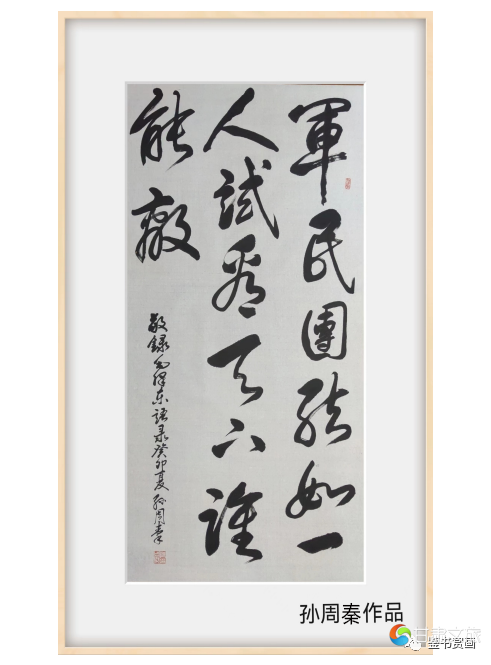 軍民團結如一
人試看天下誰
能敵
敬錄毛泽东语录癸卯夏孙周秦
孙周秦作品
鉴书赏画